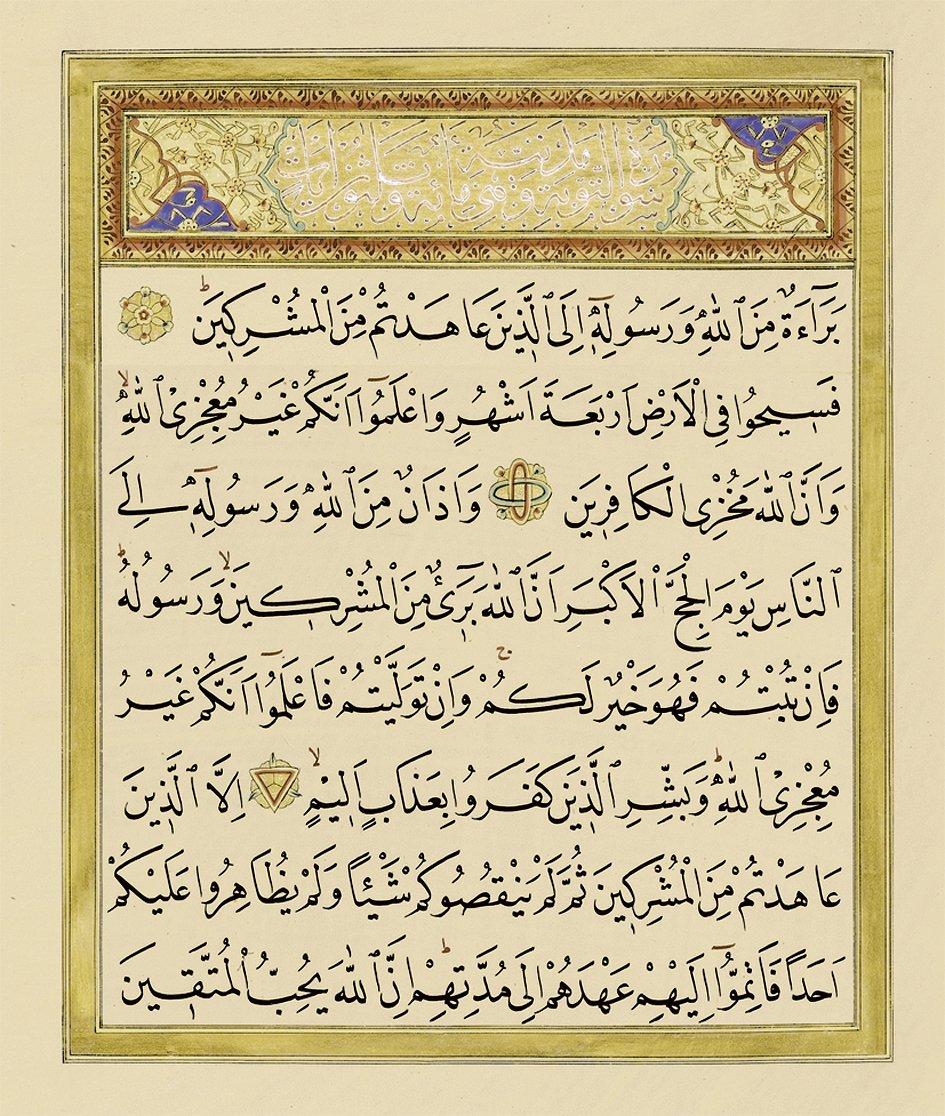 سورة التوبة مدنية وهي مائة وثلثون ايات
بَرَٓاءَةٌ مِنَ ٱللّٰهِ وَرَسُولِهٖٓ اِلَى ٱلَّذٖينَ عَاهَدْتُمْ مِنَ ٱلْمُشْرِكٖينَ ط
فَسٖيحُوا فِي ٱلْاَرْضِ اَرْبَعَةَ اَشْهُرٍ وَاعْلَمُٓوا اَنَّكُمْ غَيْرُ مُعْجِزِي ٱللّٰهِ لا
وَاَنَّ ٱللّٰهَ مُخْزِي ٱلْكَافِرٖينَ وَاَذَانٌ مِنَ ٱللّٰهِ وَرَسُولِهٖٓ اِلَى
ٱلنَّاسِ يَوْمَ ٱلْحَجِّ ٱلْاَكْبَرِ اَنَّ ٱللّٰهَ بَرٖٓئٌ مِنَ ٱلْمُشْرِكٖينَ لا وَرَسُولُهُ ط
فَاِنْ تُبْتُمْ فَهُوَ خَيْرٌ لَكُمْ ج وَاِنْ تَوَلَّيْتُمْ فَاعْلَمُٓوا اَنَّكُمْ غَيْرُ
مُعْجِزِي ٱللّٰهِ ط وَبَشِّرِ ٱلَّذٖينَ كَفَرُوا بِعَذَابٍ اَلٖيمٍ لا اِلَّا ٱلَّذٖينَ
عَاهَدْتُمْ مِنَ ٱلْمُشْرِكٖينَ ثُمَّ لَمْ يَنْقُصُوكُمْ شَيْـًٔا وَلَمْ يُظَاهِرُوا عَلَيْكُمْ
اَحَدًا فَاَتِمُّٓوا اِلَيْهِمْ عَهْدَهُمْ اِلٰى مُدَّتِهِمْ ط اِنَّ ٱللّٰهَ يُحِبُّ ٱلْمُتَّقٖينَ